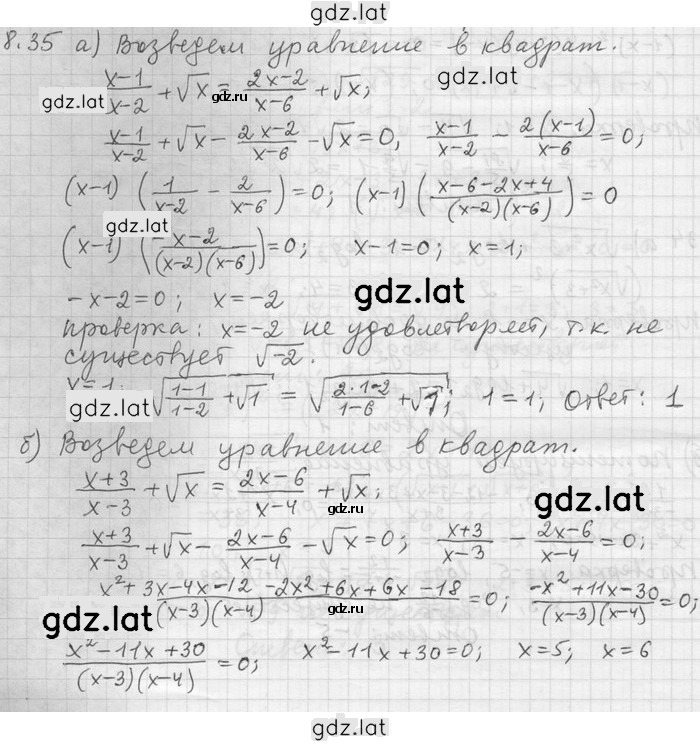 gdz.lat
8.35 а) Возведем уравнение в квадрат.
(x-1)/(x-2) + √x = (2x-2)/(x-6) + √x;
gdz.lat
gdz.lat
(x-1)/(x-2) + √x - (2x-2)/(x-6) - √x = 0, (x-1)/(x-2) - 2(x-1)/(x-6) = 0;
(x-1) (1/(x-2) - 2/(x-6)) = 0; (x-1) ((x-6-2x+4)/((x-2)(x-6))) = 0
gdz.lat
(x-1) ((-x-2)/((x-2)(x-6))) = 0; x-1=0; x=1;
-x-2=0; x=-2
gdz.lat
проверка: x=-2 не удовлетворяет, т.к. не
существует √-2.
x=1: √((1-1)/(1-2) + √1) = √((2·1-2)/(1-6) + √1); 1=1; Ответ: 1
gdz.lat
б) Возведем уравнение в квадрат.
(x+3)/(x-3) + √x = (2x-6)/(x-4) + √x;
gdz.lat
gdz.lat
(x+3)/(x-3) + √x - (2x-6)/(x-4) - √x = 0; (x+3)/(x-3) - (2x-6)/(x-4) = 0;
(x²+3x-4x-12-2x²+6x+6x-18)/((x-3)(x-4)) = 0; (-x²+11x-30)/((x-3)(x-4)) = 0;
gdz.lat
(x²-11x+30)/((x-3)(x-4)) = 0; x²-11x+30=0; x=5; x=6
gdz.lat